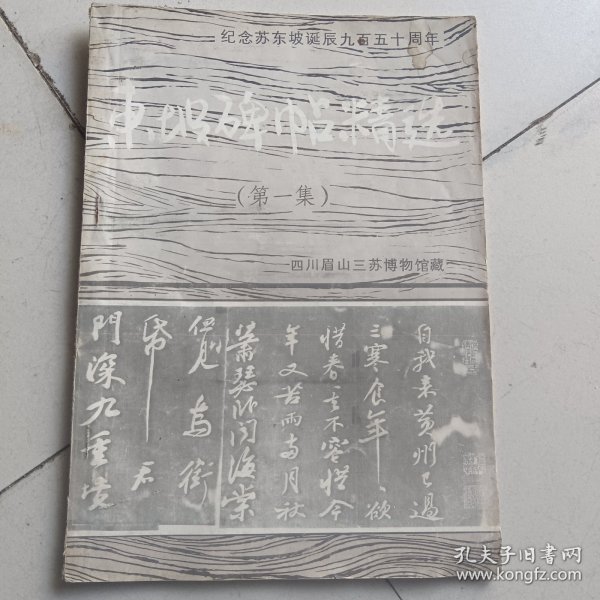 纪念苏东坡诞辰九百五十周年
東坡碑帖精选
(第一集)
四川眉山三苏博物馆藏
自我来黄州已過
三寒食年〻欲
惜春〻去不容惜今
年又苦雨兩月秋
蕭瑟卧聞海棠
但見烏銜
帋君
門深九重墳
孔夫子旧书网
www.kongfz.com